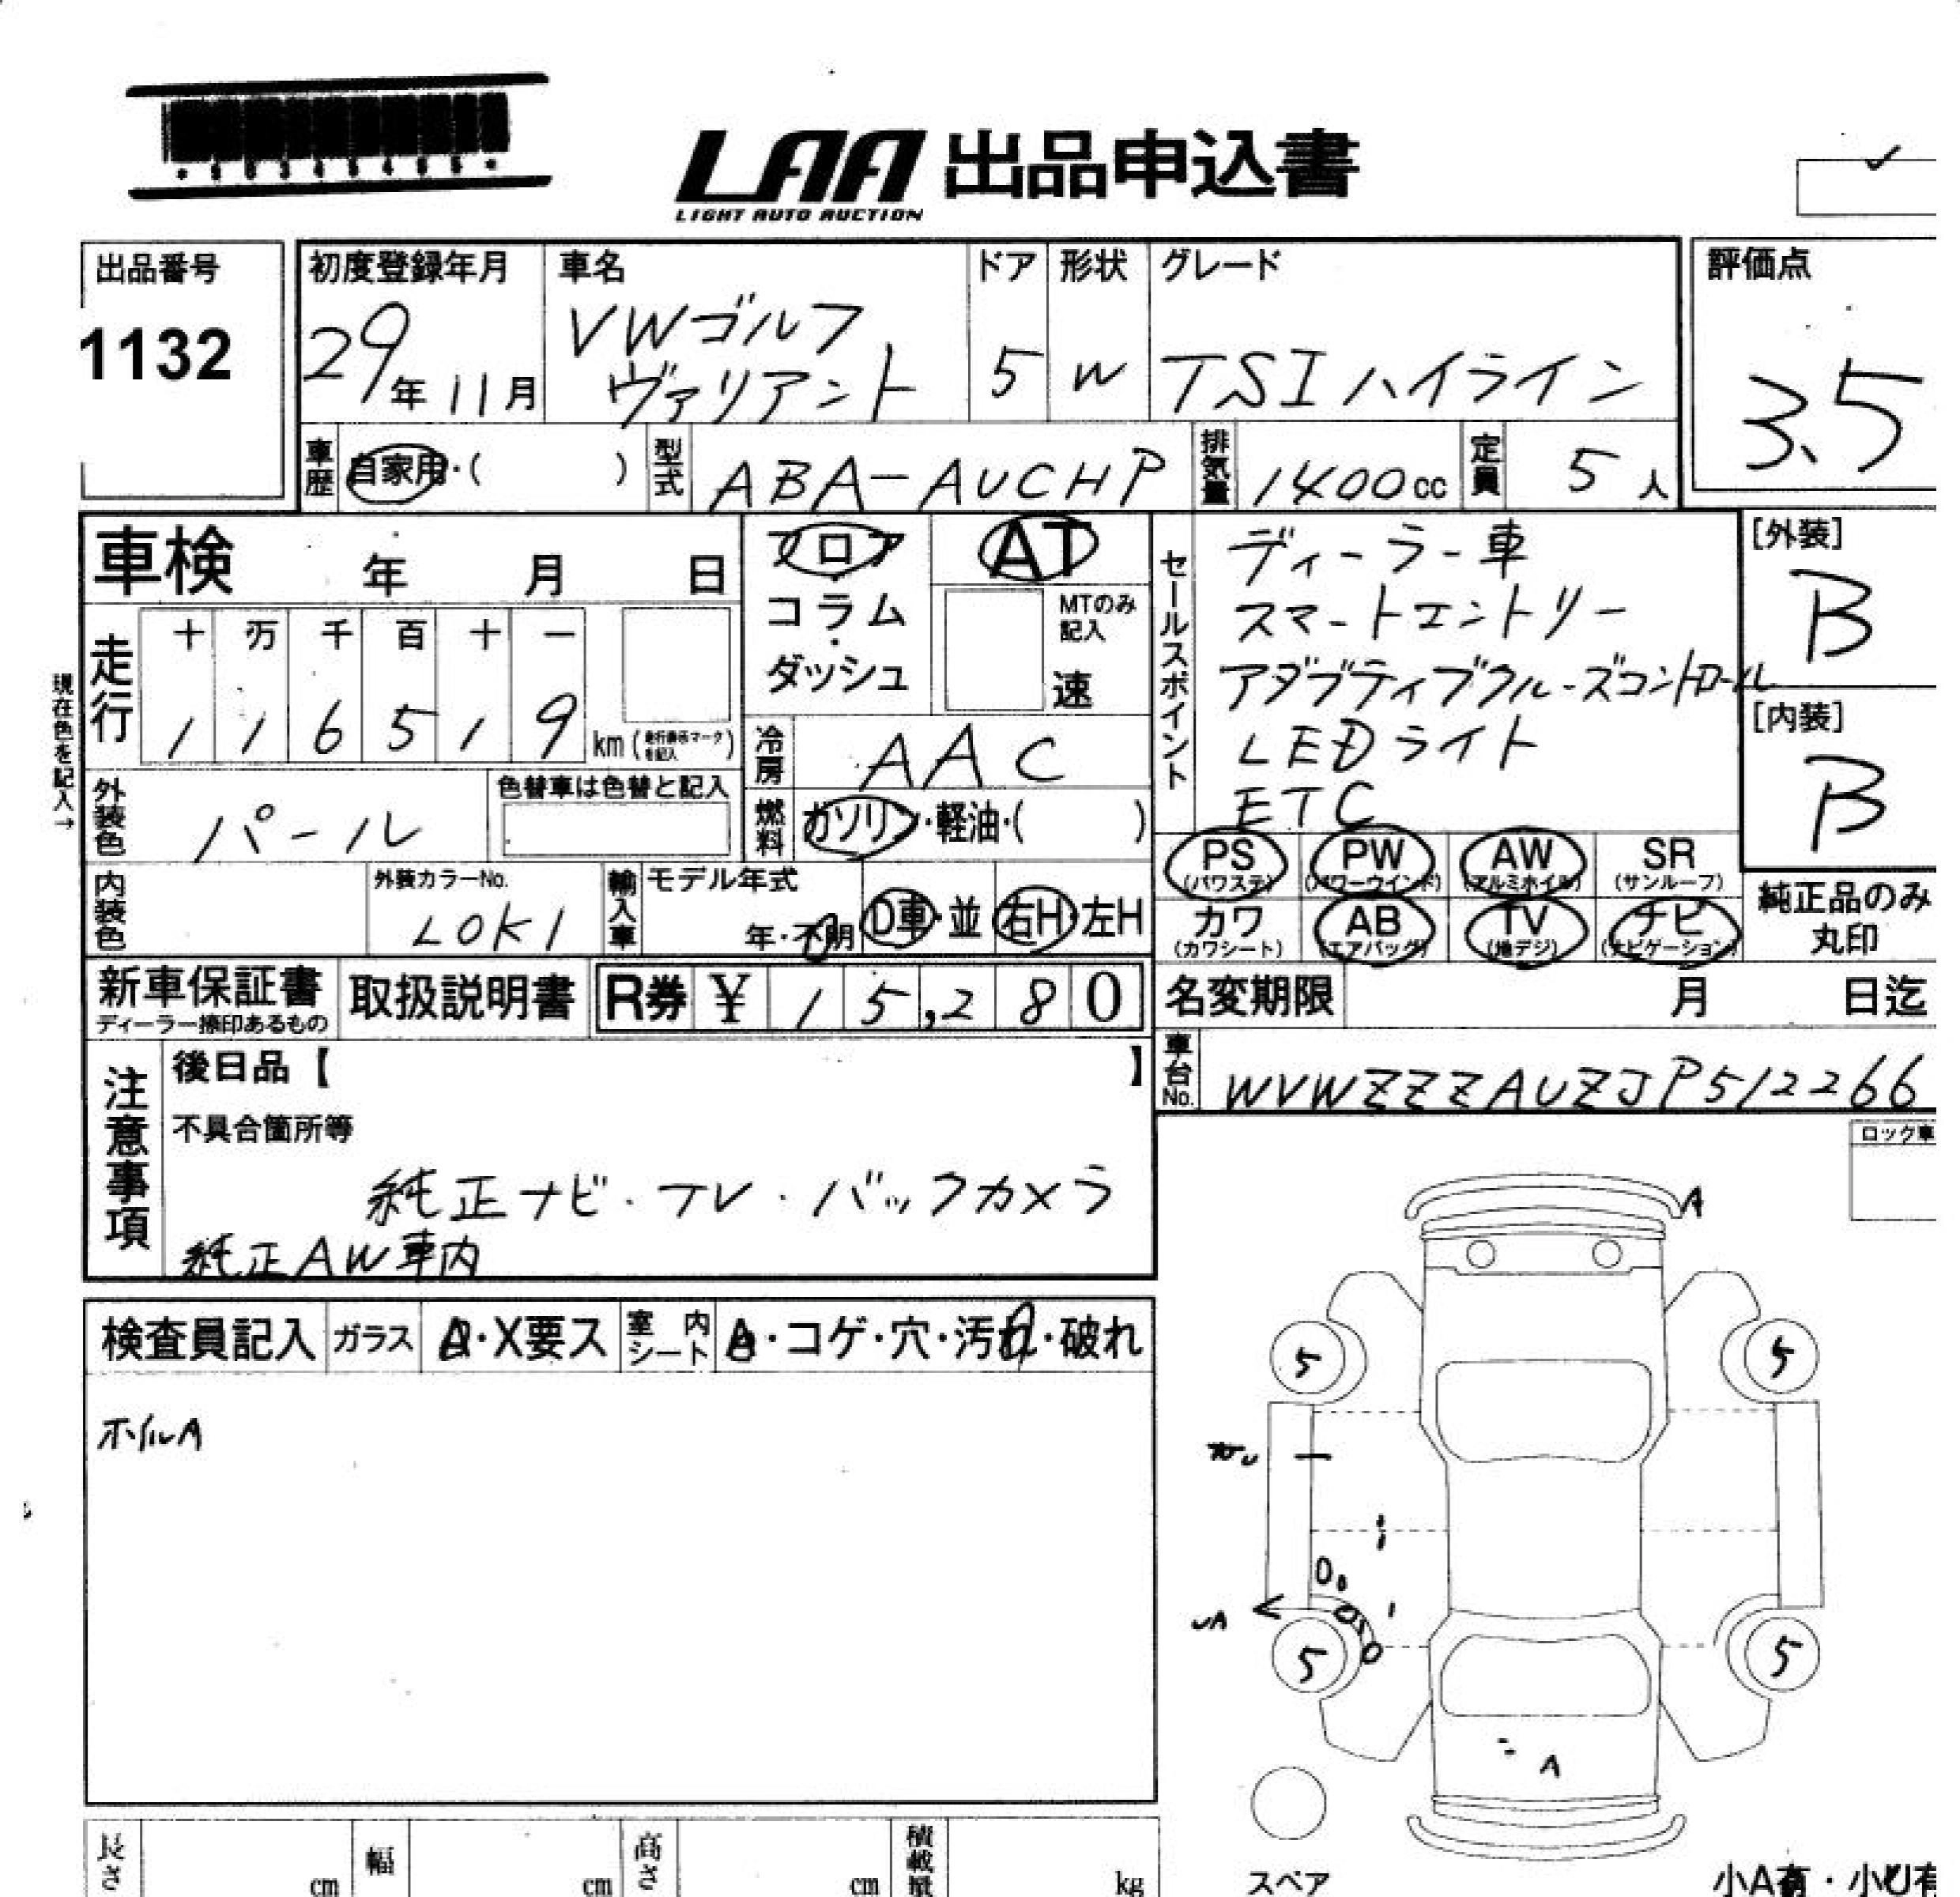 LAA 出品申込書
LIGHT AUTO AUCTION
出品番号
1132
初度登録年月
29年11月
車名
VWゴルフ
ヴァリアント
ドア
5
形状
W
グレード
TSIハイライン
評価点
3.5
車歴
自家用・( )
型式
ABA-AUCHP
排気量
1400cc
定員
5人
車検 年 月 日
フロア
コラム
ダッシュ
AT
MTのみ
記入
速
セールスポイント
ディーラー車
スマートエントリー
アダプティブクルーズコントロール
LEDライト
ETC
[外装]
B
[内装]
B
現在色を記入→
走行
十 万 千 百 十 一
1 1 6 5 1 9 km
冷房
AAC
外装色
パール
色替車は色替と記入
燃料
ガソリン・軽油・( )
PS
(パワステ)
PW
(パワーウインド)
AW
(アルミホイル)
SR
(サンルーフ)
内装色
外装カラーNo.
LOK1
輸入車
モデル年式
年・不明
D車・並
右H・左H
カワ
(カワシート)
AB
(エアバッグ)
TV
(地デジ)
ナビ
(ナビゲーション)
純正品のみ
丸印
新車保証書
ディーラー捺印あるもの
取扱説明書
R券 ¥ 15,280
名変期限 月 日迄
車台No.
WVWZZZAUZJP512266
注意事項
後日品【 】
不具合箇所等
純正ナビ・TV・バックカメラ
純正AW車内
ロック車
A
検査員記入
ガラス
A・X要ス
室内シート
A・コゲ・穴・汚れ・破れ
ホイルA
5
5
5
5
A
スペア
長さ cm
幅 cm
高さ cm
積載量 kg
小A有・小U有